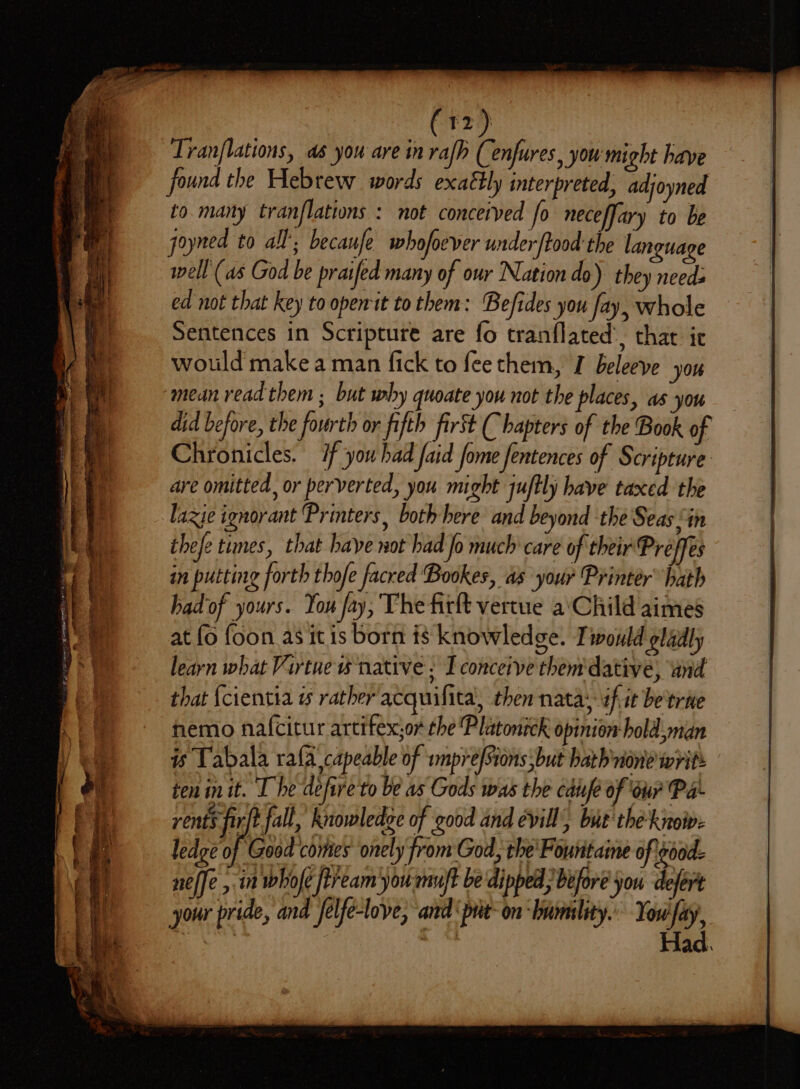 (12)
Tranſlations, as you are in raſh Cenſures, you might have
found the Hebrew words exactly interpreted, adjoyned
to many tranſlations : not conceived ſo neceſſary to be
joyned to all; becauſe whoſoever underſtood the language
well (as God be praiſed many of our Nation do) they need-
ed not that key to open it to them: Beſides you ſay, whole
Sentences in Scripture are ſo tranſlated, that it
would make a man ſick to ſee them, I beleeve you
mean read them ; but why quoate you not the places, as you
did before, the fourth or fifth firſt Chapters of the Book of
Chronicles. If you had ſaid ſome ſentences of Scripture
are omitted, or perverted, you might juſtly have taxed the
lazie ignorant Printers, both here and beyond the Seas, in
theſe times, that have not had ſo much care of their Preſſes
in putting forth thoſe ſacred Bookes, as your Printer hath
had of yours. You ſay, The firſt vertue a Child aimes
at ſo ſoon as it is born is knowledge. I would gladly
learn what Virtue is native ; I conceive them dative, and
that ſcientia is rather acquiſita, then nata; if it be true
nemo naſcitur artifex;or the Platonick opinion hold,man
is Tabala raſa,capeable of impreſſions,but hath none writ-
ten in it. The deſire to be as Gods was the cauſe of our Pa-
rents firſt fall, knowledge of good and evill ; but the know-
ledge of Good comes onely from God, the Fountaine of good-
neſſe , in whoſe ſtream you muſt be dipped, before you deſert
your pride, and ſelfe-love, and put on humility. You ſay,
Had.